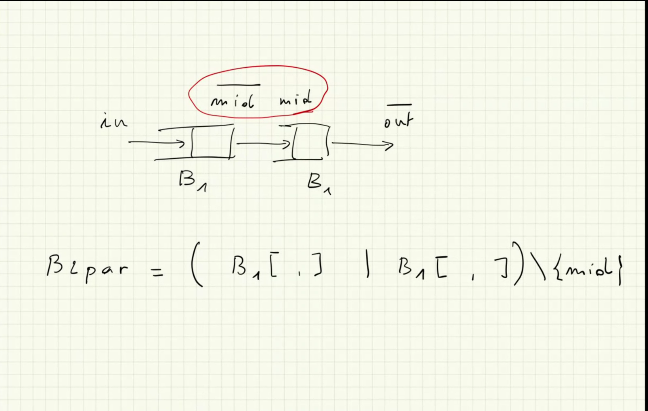 $\overline{mid}$ mid
in $\overline{out}$
B₁ B₁
B2par = ( B₁[ , ] | B₁[ , ])\{mid}